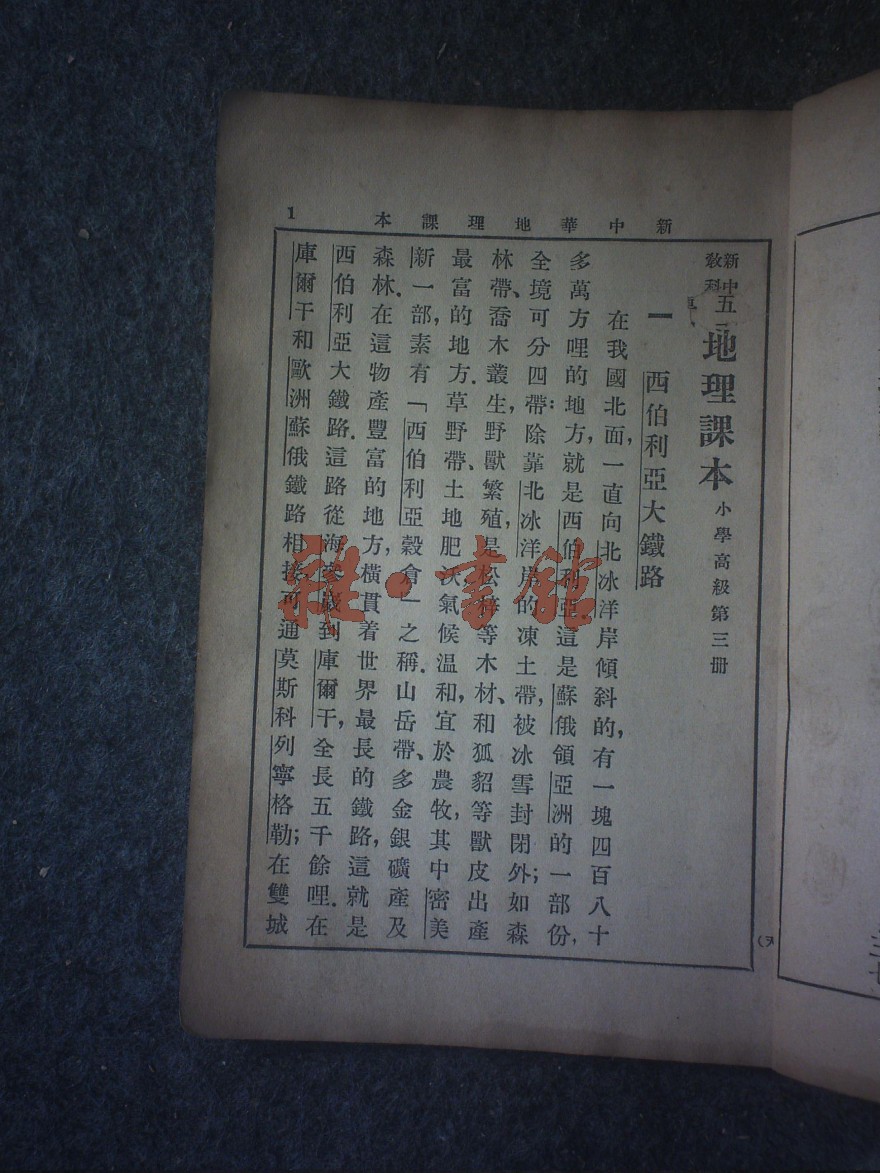 新中華地理課本
1
新中
教科
五
地理課本 小學高級第三册
一 西伯利亞大鐵路
在我國北面,一直向北冰洋岸傾斜的,有一塊四百八十
多萬方哩的地方,就是西伯利亞.這是蘇俄領亞洲的一部份,
全境可分四帶:除靠北冰洋岸的凍土帶,被冰雪封閉外;如森
林帶、喬木叢生,野獸繁殖,是松等木材、和狐貂等獸皮出產
最富的地方.草野帶、土地肥沃氣候温和,宜於農牧,其中密美
新一部,素有「西伯利亞穀倉」之稱.山岳帶、多金銀礦產及
森林.在這物產豐富的地方,橫貫着世界最長的鐵路,這就是
西伯利亞大鐵路.這路從海參崴到庫爾干,全長五千餘哩.在
庫爾干和歐洲蘇俄鐵路相接,可通莫斯科列寧格勒;在雙城
雜·書館